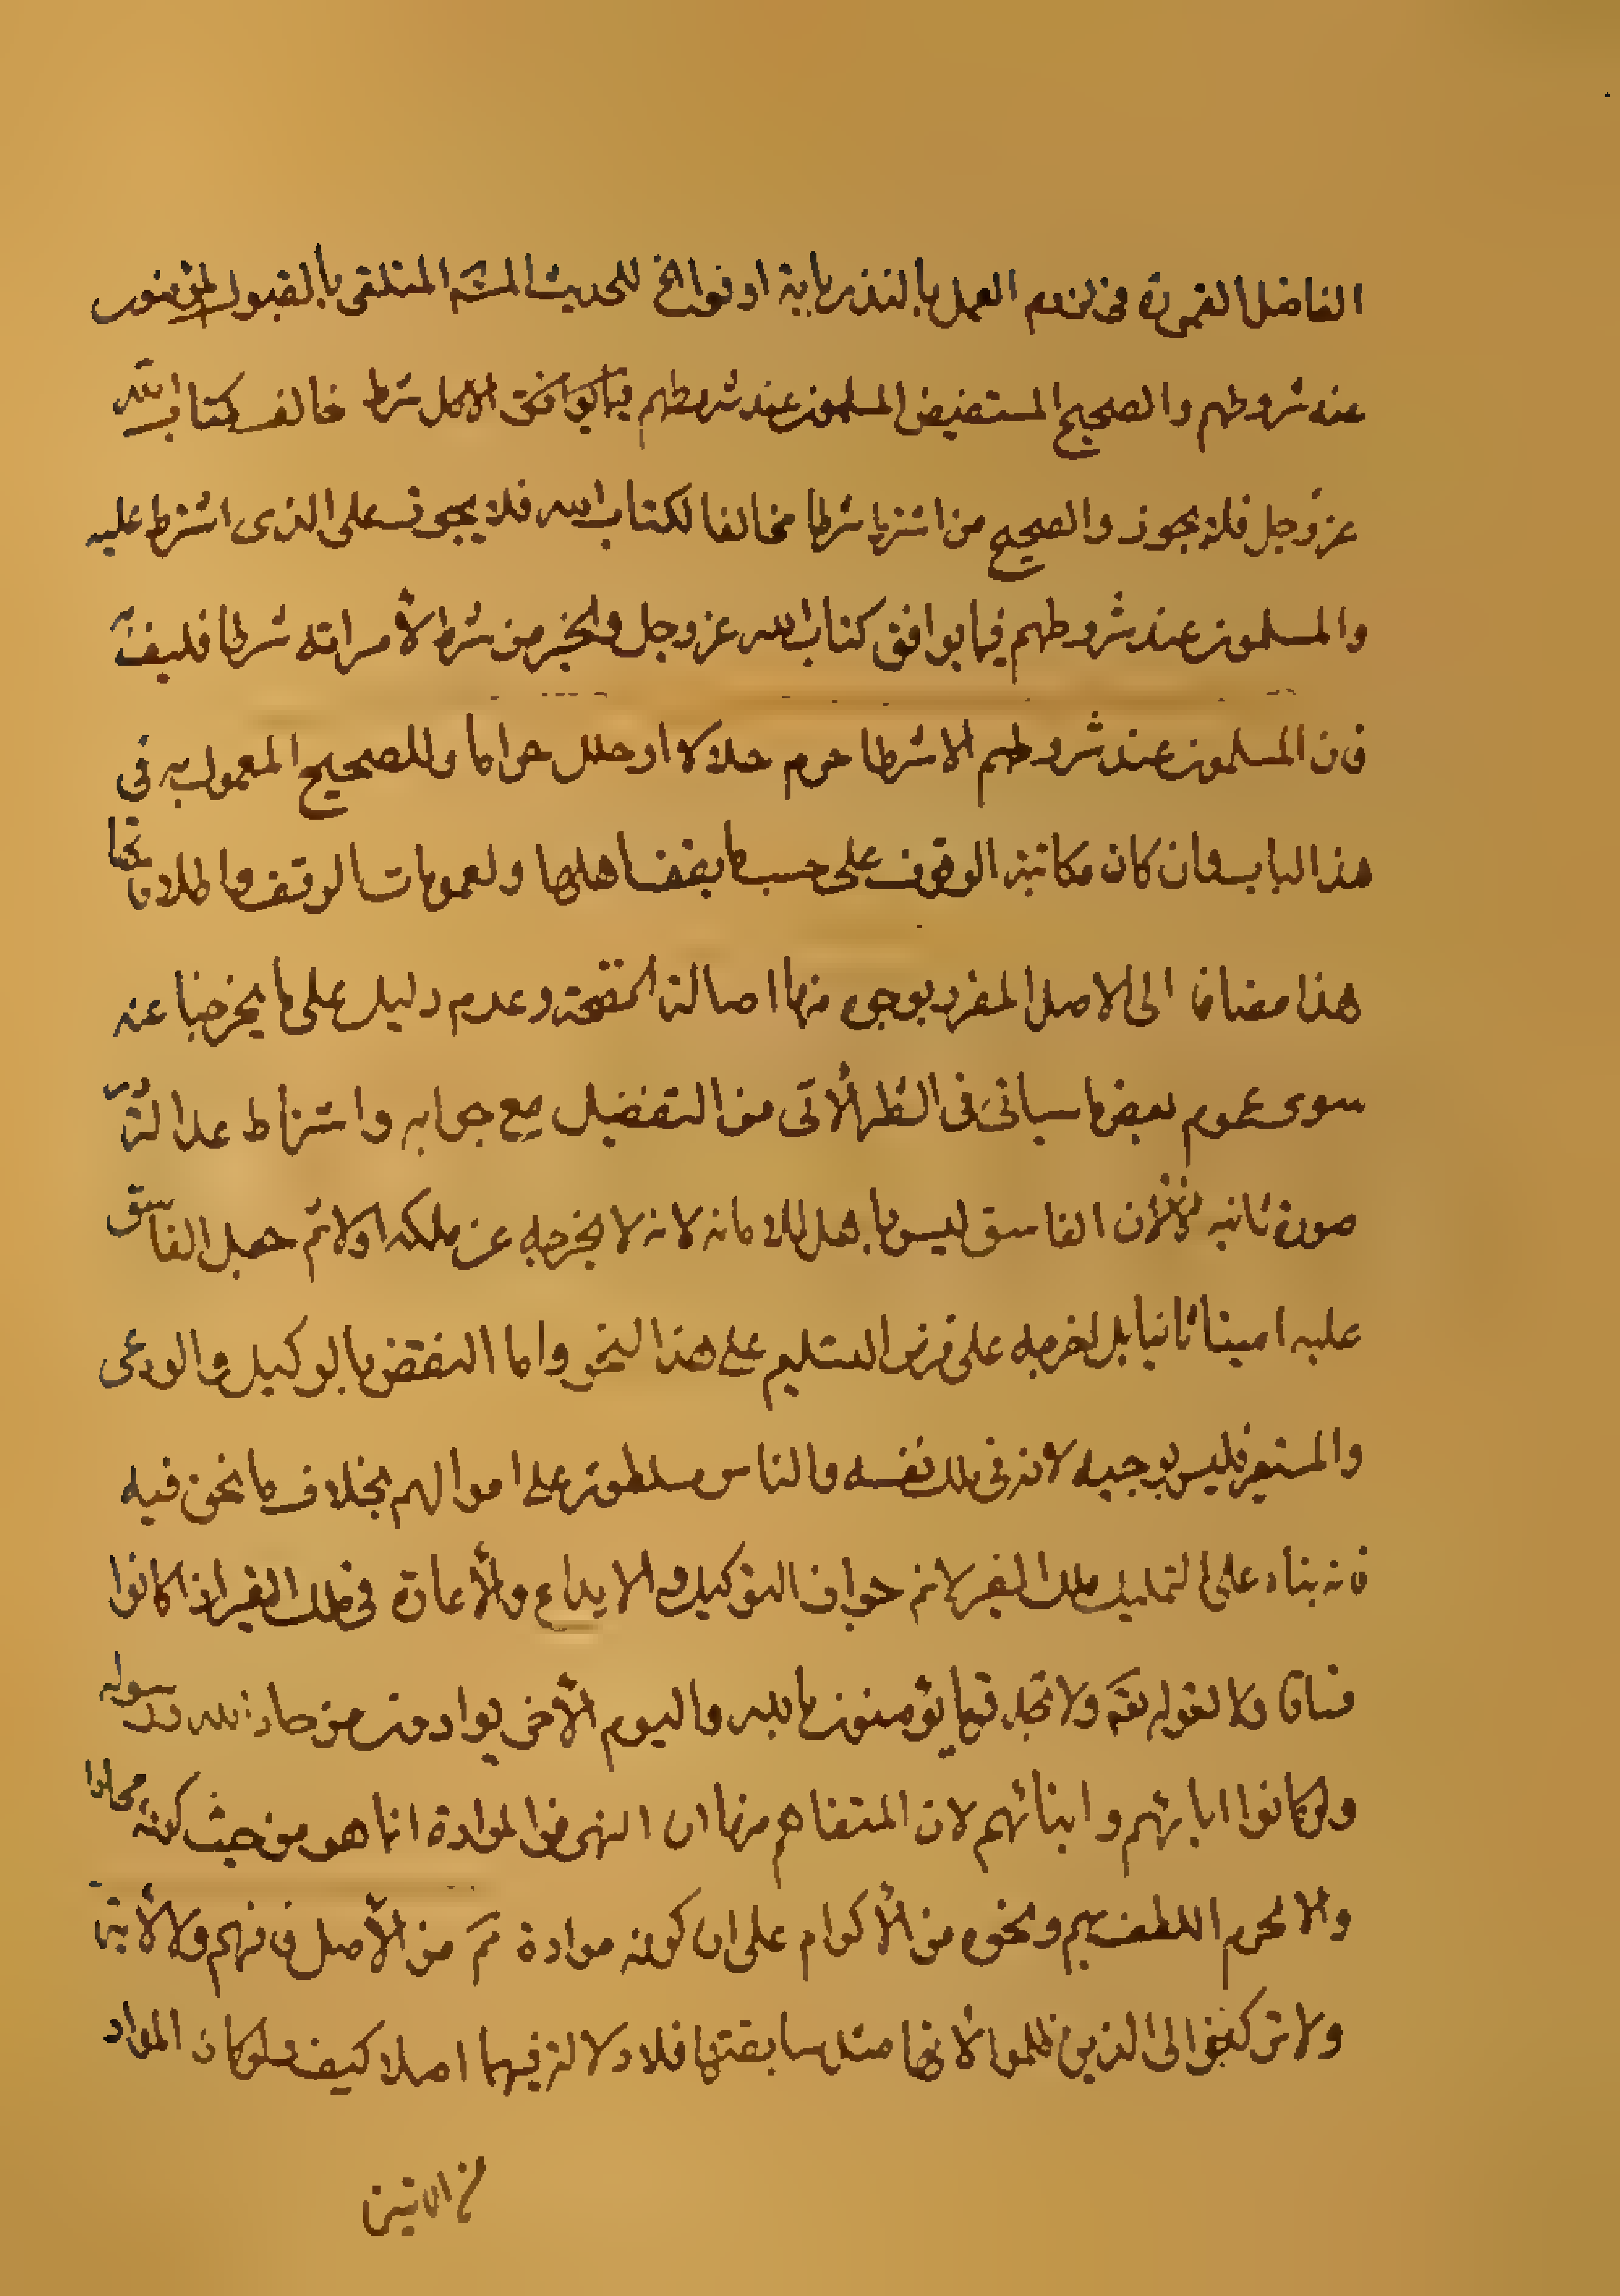 الفاضل القمي ره في لزوم العمل بالنذر للحديث المتلقى بالقبول المؤمنون
عند شروطهم والصحيح المستفيض المسلمون عند شروطهم الا كل شرط خالف كتاب الله
عز وجل فلا يجوز والصحيح من اشترط شرطا مخالفا لكتاب الله فلا يجوز على الذي اشترط عليه
والمسلمون عند شروطهم فيما يوافق كتاب الله عز وجل والخبر من شرط لأمراته شرطا فليف
فان المسلمون عند شروطهم الا شرطا حرم حلالا او حلل حراما وللصحيح المعمول به في
هذا الباب وان كان مكاتبة الوقوف على حسب ما يقفها اهلها ولعمومات الوقف واطلاقاتها
هذا مضافا الى الاصل المقرر بوجوه منها اصالة الصحة وعدم دليل على ما يخرجنا عنه
سوى عموم بعض ما سياتي في النظر الأتي من التفضيل مع جوابه واشتراط عدالته
صورة ثانيه لان الفاسق ليس باهل للامانه لانه لا يخرجه عن ملكه اولا ثم جعل الفاسق
عليه امينا ثانيا بل اخرجه على فرض التسليم على هذا النحو واما النقض بالوكيل والودعى
والمستعير فليس بوجيه لانه في ملك نفسه والناس مسلطون على اموالهم بخلاف ما نحن فيه
فانه بناء على التمليك ملك الغير لا نم جواز التوكيل والايداع والأعارة في ملك الغير اذا كانوا
فساقا ولا لقوله تع ولا تجد قوما يؤمنون بالله واليوم الأخر يوادون من حاد الله ورسوله
ولو كانوا ابائهم وابنائهم لان المتفاهم منها ان النهى من الموادة انما هو من حيث كونه محادا
والا لحرم اللطف بهم ونحوه من الأكرام على ان كونه موادة ثم من الأصل فافهم ولا لأية
ولا تركنوا الى الذين ظلموا لأنها مثل سابقتها فلا دلالة فيهما اصلا كيف ولو كان المواد
من الايتين